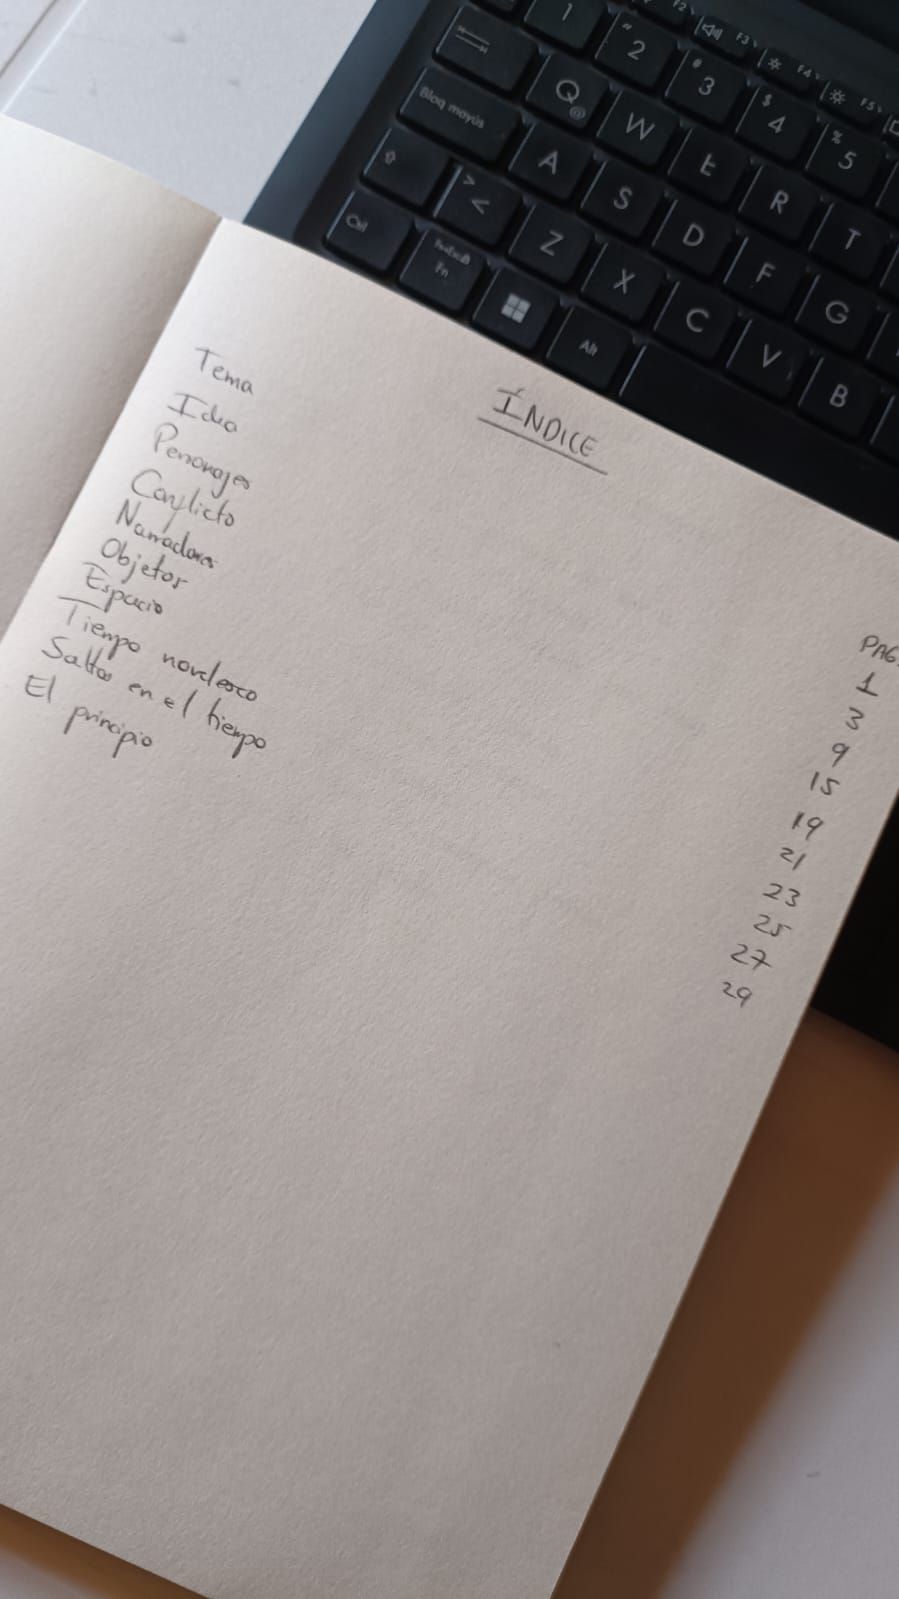 F2
F3
F4
F5
1
" 2
# 3
$ 4
% 5
Q @
W
E
R
T
Bloq mayús
A
S
D
F
G
> <
Z
X
C
V
B
Ctrl
Fn
Alt
ÍNDICE
PAG.
Tema 1
Idea 3
Personajes 9
Conflicto 15
Narradores 19
Objetos 21
Espacio 23
Tiempo novelesco 25
Saltos en el tiempo 27
El principio 29